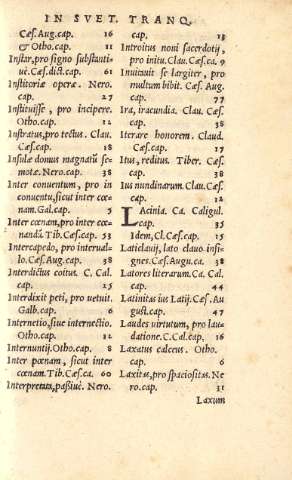 IN SVET. TRANQ.
Cæs. Aug. cap. 16
& Otho. cap. 11
Instar, pro signo substanti-
uè. Cæs. dict. cap. 61
Institoriæ operæ. Nero.
cap. 27
Instituisse, pro incipere.
Otho. cap. 12
Instratus, pro tectus. Clau.
Cæs. cap. 18
Insulæ domus magnatũ se-
motæ. Nero. cap. 38
Inter conuentum, pro in
conuentu, sicut inter cœ-
nam. Gal. cap. 5
Inter cœnam, pro inter cœ-
nandũ. Tib. Cæs. cap. 53
Intercapedo, pro interual-
lo. Cæs. Aug. cap. 38
Interdictus coitus. C. Cal.
cap. 25
Interdixit peti, pro uetuit.
Galb. cap. 6
Internetio, siue internectio.
Otho. cap. 12
Internuntij. Otho. cap. 8
Inter pœnam, sicut inter
cœnam. Tib. Cæs. ca. 60
Interpretata, paßiuè. Nero.
cap. 13
Introitus noni sacerdotij,
pro initu. Clau. Cæs. ca. 9
Inuixuit se largiter, pro
multum bibit. Cæs. Aug.
cap. 77
Ira, iracundia. Clau. Cæs.
cap. 38
Iterare honorem. Claud.
Cæs. cap. 17
Itus, reditus. Tiber. Cæs.
cap. 38
Ius nundinarum. Clau. Cæs.
cap. 12
LAcinia. Ca. Caligul.
cap. 35
Idem, Cl. Cæs. cap. 15
Laticlauij, lato clauo insi-
gnes. Cæs. Augu. ca. 38
Latores literarum. Ca. Cal.
cap. 44
Latinitas ius Latij. Cæs. Au
gust. cap. 47
Laudes uirtutum, pro lau-
datione. C. Cal. cap. 16
Laxatus calceus. Otho.
cap. 6
Laxitas, pro spaciositas. Ne
ro. cap. 31
Laxum